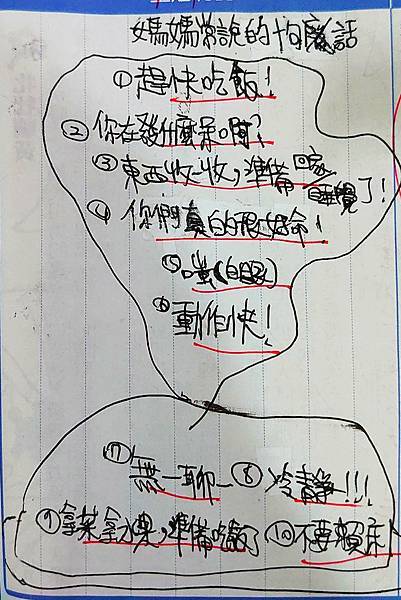 媽媽常說的十句廢話
①趕快吃飯!
②你在發什麼呆啊?
③東西收一收,準備回家睡覺了!
④你們真的很好命!
⑤嗤(白眼)
⑥動作快!
⑦無一聊一
⑧冷靜!!!
⑨拿菜拿水果,準備吃飯了
⑩不要賴床!